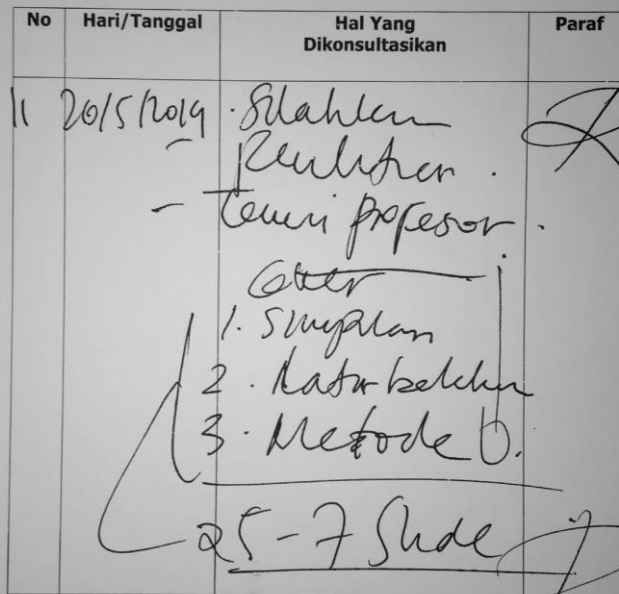 No Hari/Tanggal Hal Yang Dikonsultasikan Paraf
11 20/5/2019 Silahkan
Penelitian.
- Temui profesor.
1. Simpulan
2. Latar belakang
3. Metode
5-7 Slide